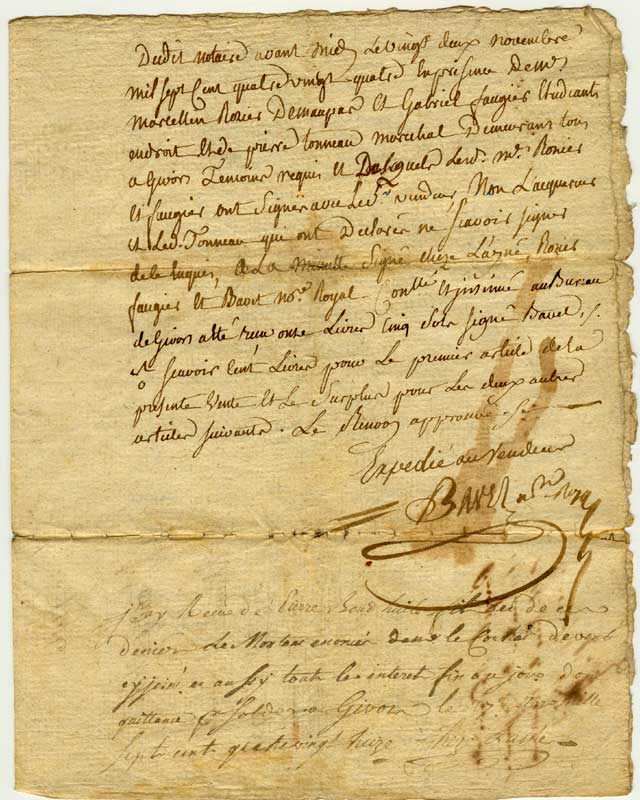 Dudit notaire avant midy Le vingt deux novembre
mil sept Cent quatre vingt quatre En presence De me.
Marcellin Rosier Demaupas Et Gabriel faugier Etudiant
endroit Et de pierre tonneau marechal Demeurans tous
a Givors Temoins requis Et Desquels Led. me. Rosier
Et faugier ont Signé avec Led. Sr. vendeur, Non L'acquereur
et Led. Tonneau qui ont Declaré ne Scavoir signer
de ce Enquis, A La Minutte Signé cheze L'aisné, Rosier
faugier Et Bavet nore. Royal Conllé Et insinué au Bureau
de Givors a été recu onze Livres Cinq Sols signé Bavet
Scavoir Cent Livres pour Le premier article de la
presente Vente Et Le Surplus pour Les deux autres
articles suivants. Le Renvoy approuvé
Expedié au Vendeur
Bavet nre Roya
j'ay Receu de Pierre fils de ce
dernier Le Montant enoncé dans le Contrat devers
cy joint et aussy toutte les interet fin au jour d'oy
quittance solde a Givors le mille
sept cent quatre vingt L'aine